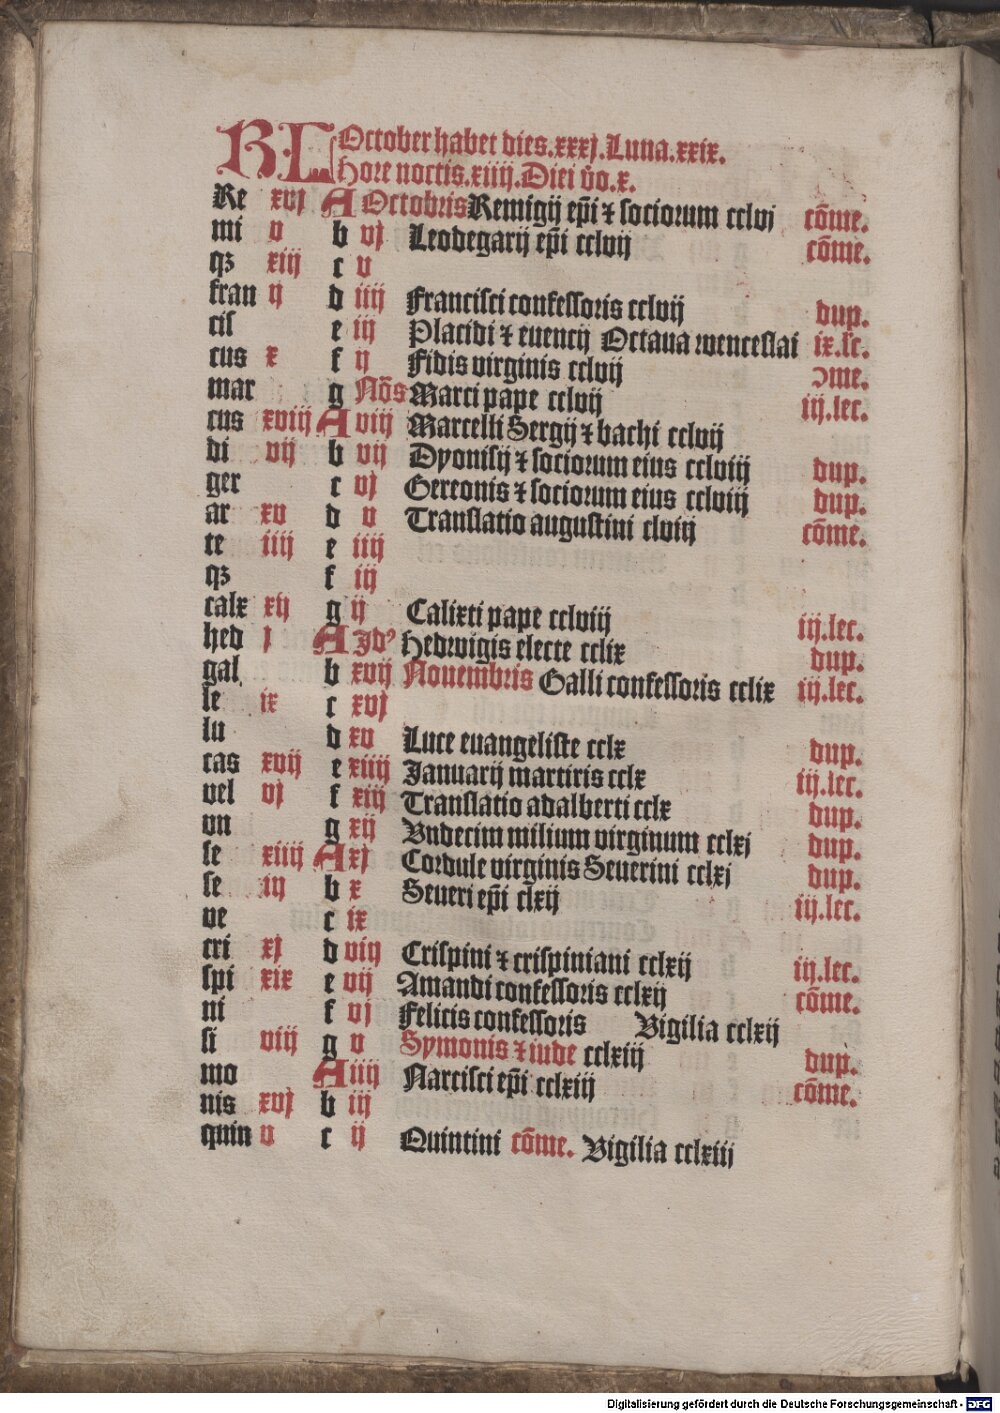 KL October habet dies.xxxj.Luna.xxix.
hore noctis.xiiij.Diei v̄o.x.
Re xvj A Octobris Remigij ep̄i ⁊ sociorum cclvj cōme.
mi v b vj Leodegarij ep̄i cclvij cōme.
qꝫ xiij c v
fran ij d iiij Francisci confessoris cclvij dup.
cis e iij Placidi ⁊ euencij Octaua wenceslai ix.lc.
cus x f ij Fidis virginis cclvij ↄme.
mar g Nōs Marci pape cclvij iij.lec.
cus xviij A viij Marcelli Sergij ⁊ bachi cclvij
di vij b vij Dyonisij ⁊ sociorum eius cclviij dup.
ger c vj Gereonis ⁊ sociorum eius cclviij dup.
ar xv d v Translatio augustini clviij cōme.
te iiij e iiij
qꝫ f iij
calx xij g ij Calixti pape cclviij iij.lec.
hed j A Jdꝰ Hedwigis electe cclix dup.
gal b xvij Nouembris Galli confessoris cclix iij.lec.
le ix c xvj
lu d xv Luce euangeliste cclx dup.
cas xvij e xiiij Januarij martiris cclx iij.lec.
vel vj f xiij Translatio adalberti cclx dup.
vn g xij Vndecim milium virginum cclxj dup.
se xiiij A xj Cordule virginis Seuerini cclxj dup.
se iij b x Seueri ep̄i clxij iij.lec.
ve c ix
cri xj d viij Crispini ⁊ crispiniani cclxij iij.lec.
spi xix e vij Amandi confessoris cclxij cōme.
ni f vj Felicis confessoris Vigilia cclxij
si viij g v Symonis ⁊ iude cclxiij dup.
mo A iiij Narcisci ep̄i cclxiij cōme.
nis xvj b iij
quin v c ij Quintini cōme. Vigilia cclxiij
Digitalisierung gefördert durch die Deutsche Forschungsgemeinschaft - DFG